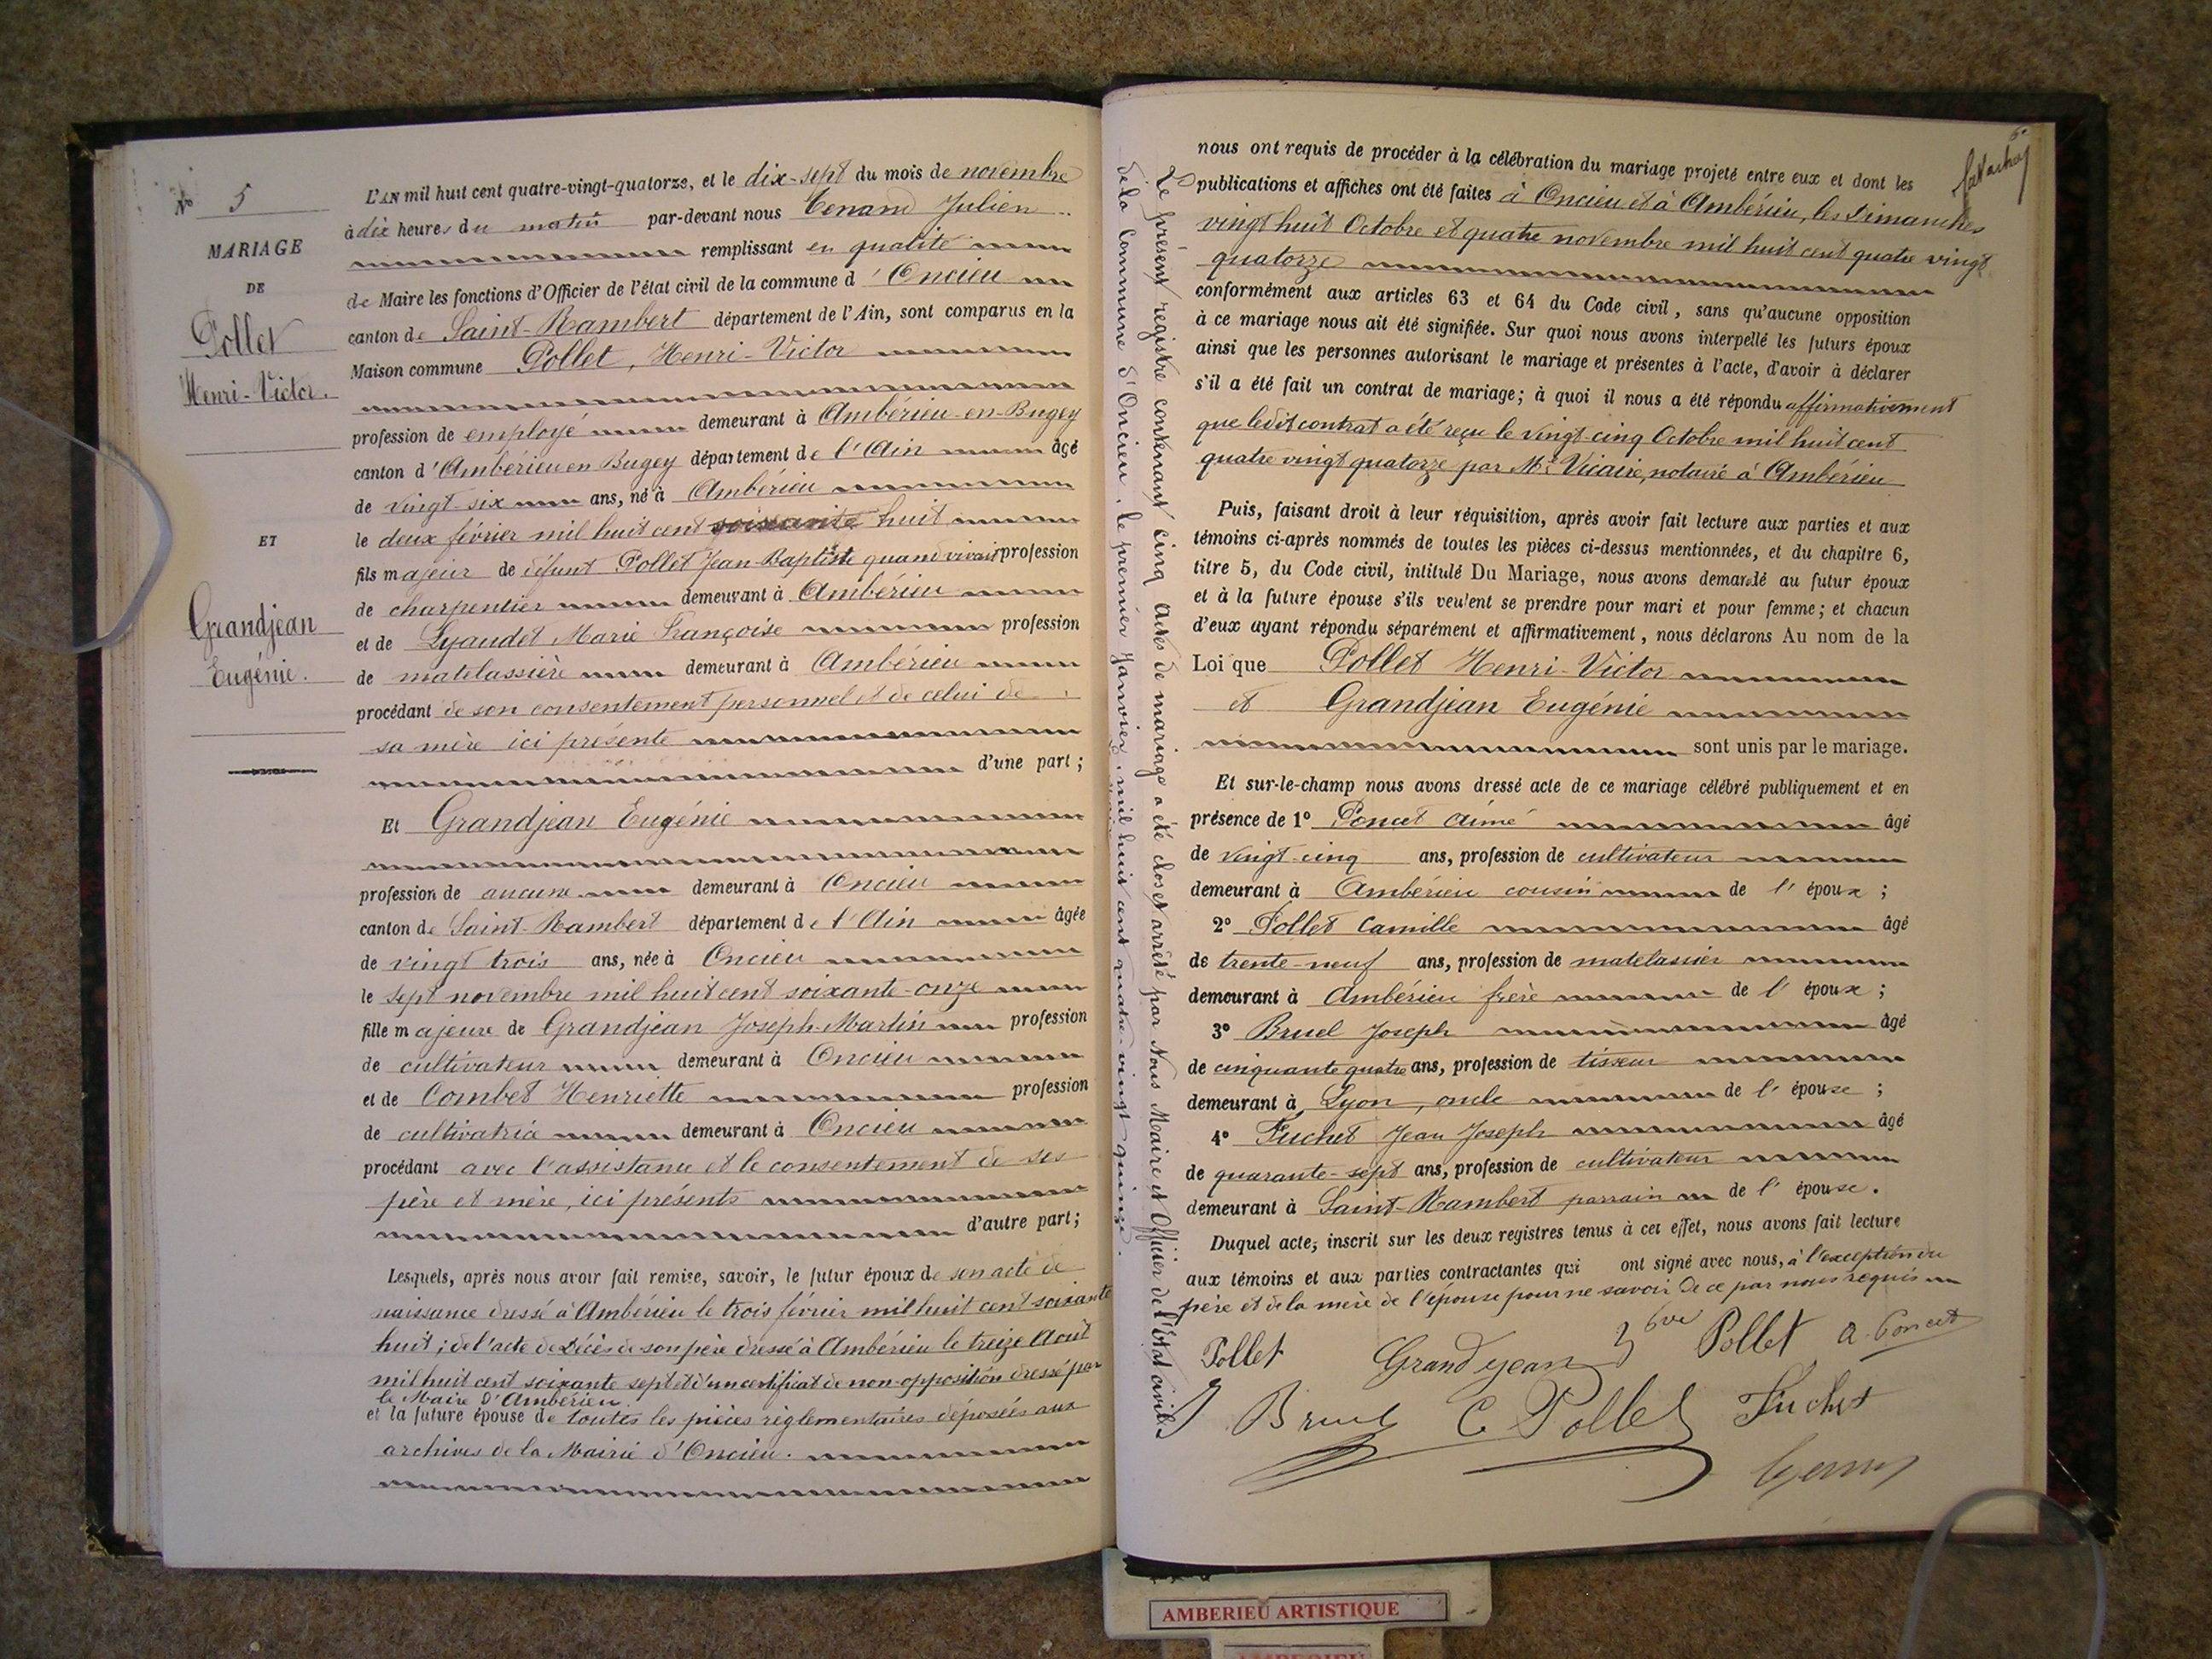 N° 5
MARIAGE
DE
Pollet
Henri-Victor.
ET
Grandjean
Eugénie.
L'AN mil huit cent quatre-vingt-quatorze, et le dix-sept du mois de novembre
à dix heures du matin par-devant nous Tenand Julien
remplissant en qualité
de Maire les fonctions d'Officier de l'état civil de la commune d'Oncieu
canton de Saint-Rambert département de l'Ain, sont comparus en la
Maison commune Pollet, Henri-Victor
profession de employé demeurant à Ambérieu-en-Bugey
canton d'Ambérieu en Bugey département de l'Ain âgé
de vingt-six ans, né à Ambérieu
le deux février mil huit cent soixante huit
fils majeur de défunt Pollet Jean-Baptiste quand vivait profession
de charpentier demeurant à Ambérieu
et de Lyaudet Marie Françoise profession
de matelassière demeurant à Ambérieu
procédant de son consentement personnel et de celui de
sa mère ici présente
d'une part ;
Et Grandjean Eugénie
profession de aucune demeurant à Oncieu
canton de Saint-Rambert département de l'Ain âgée
de vingt trois ans, née à Oncieu
le sept novembre mil huit cent soixante-onze
fille majeure de Grandjean Joseph-Martin profession
de cultivateur demeurant à Oncieu
et de Combet Henriette profession
de cultivatrice demeurant à Oncieu
procédant avec l'assistance et le consentement de ses
père et mère, ici présents
d'autre part ;
Lesquels, après nous avoir fait remise, savoir, le futur époux de son acte de
naissance dressé à Ambérieu le trois février mil huit cent soixante
huit ; de l'acte de Décès de son père dressé à Ambérieu le treize Août
mil huit cent soixante sept et d'un certificat de non-opposition dressé par
le Maire d'Ambérieu.
et la future épouse de toutes les pièces règlementaires déposées aux
archives de la Mairie d'Oncieu.
Le présent registre contenant cinq actes de mariage a été clos et arrêté par Nous Maire et Officier de l'Etat civil
de la commune d'Oncieu, le premier Janvier mil huit cent quatre-vingt quinze.
nous ont requis de procéder à la célébration du mariage projeté entre eux et dont les
publications et affiches ont été faites à Oncieu et à Ambérieu, les Dimanches
vingt huit Octobre et quatre novembre mil huit cent quatre vingt
quatorze
conformément aux articles 63 et 64 du Code civil, sans qu'aucune opposition
à ce mariage nous ait été signifiée. Sur quoi nous avons interpellé les futurs époux
ainsi que les personnes autorisant le mariage et présentes à l'acte, d'avoir à déclarer
s'il a été fait un contrat de mariage ; à quoi il nous a été répondu affirmativement
que ledit contrat a été reçu le vingt-cinq Octobre mil huit cent
quatre vingt quatorze par Me Vicaire, notaire à Ambérieu
Puis, faisant droit à leur réquisition, après avoir fait lecture aux parties et aux
témoins ci-après nommés de toutes les pièces ci-dessus mentionnées, et du chapitre 6,
titre 5, du Code civil, intitulé Du Mariage, nous avons demandé au futur époux
et à la future épouse s'ils veulent se prendre pour mari et pour femme ; et chacun
d'eux ayant répondu séparément et affirmativement, nous déclarons Au nom de la
Loi que Pollet Henri-Victor
et Grandjean Eugénie
sont unis par le mariage.
Et sur-le-champ nous avons dressé acte de ce mariage célébré publiquement et en
présence de 1° Poncet Aimé âgé
de vingt-cinq ans, profession de cultivateur
demeurant à Ambérieu cousin de l'époux ;
2° Pollet Camille âgé
de trente-neuf ans, profession de matelassier
demeurant à Ambérieu frère de l'époux ;
3° Bruel Joseph âgé
de cinquante quatre ans, profession de tisseur
demeurant à Lyon, oncle de l'épouse ;
4° Fuchet Jean Joseph âgé
de quarante-sept ans, profession de cultivateur
demeurant à Saint-Rambert parrain de l'épouse.
Duquel acte, inscrit sur les deux registres tenus à cet effet, nous avons fait lecture
aux témoins et aux parties contractantes qui ont signé avec nous, à l'exception du
père et de la mère de l'épouse pour ne savoir de ce par nous requis
Pollet Grandjean Vve Pollet A. Poncet
J Bruel C Pollet Fuchet
Tenand
AMBERIEU ARTISTIQUE
AMBERIEU